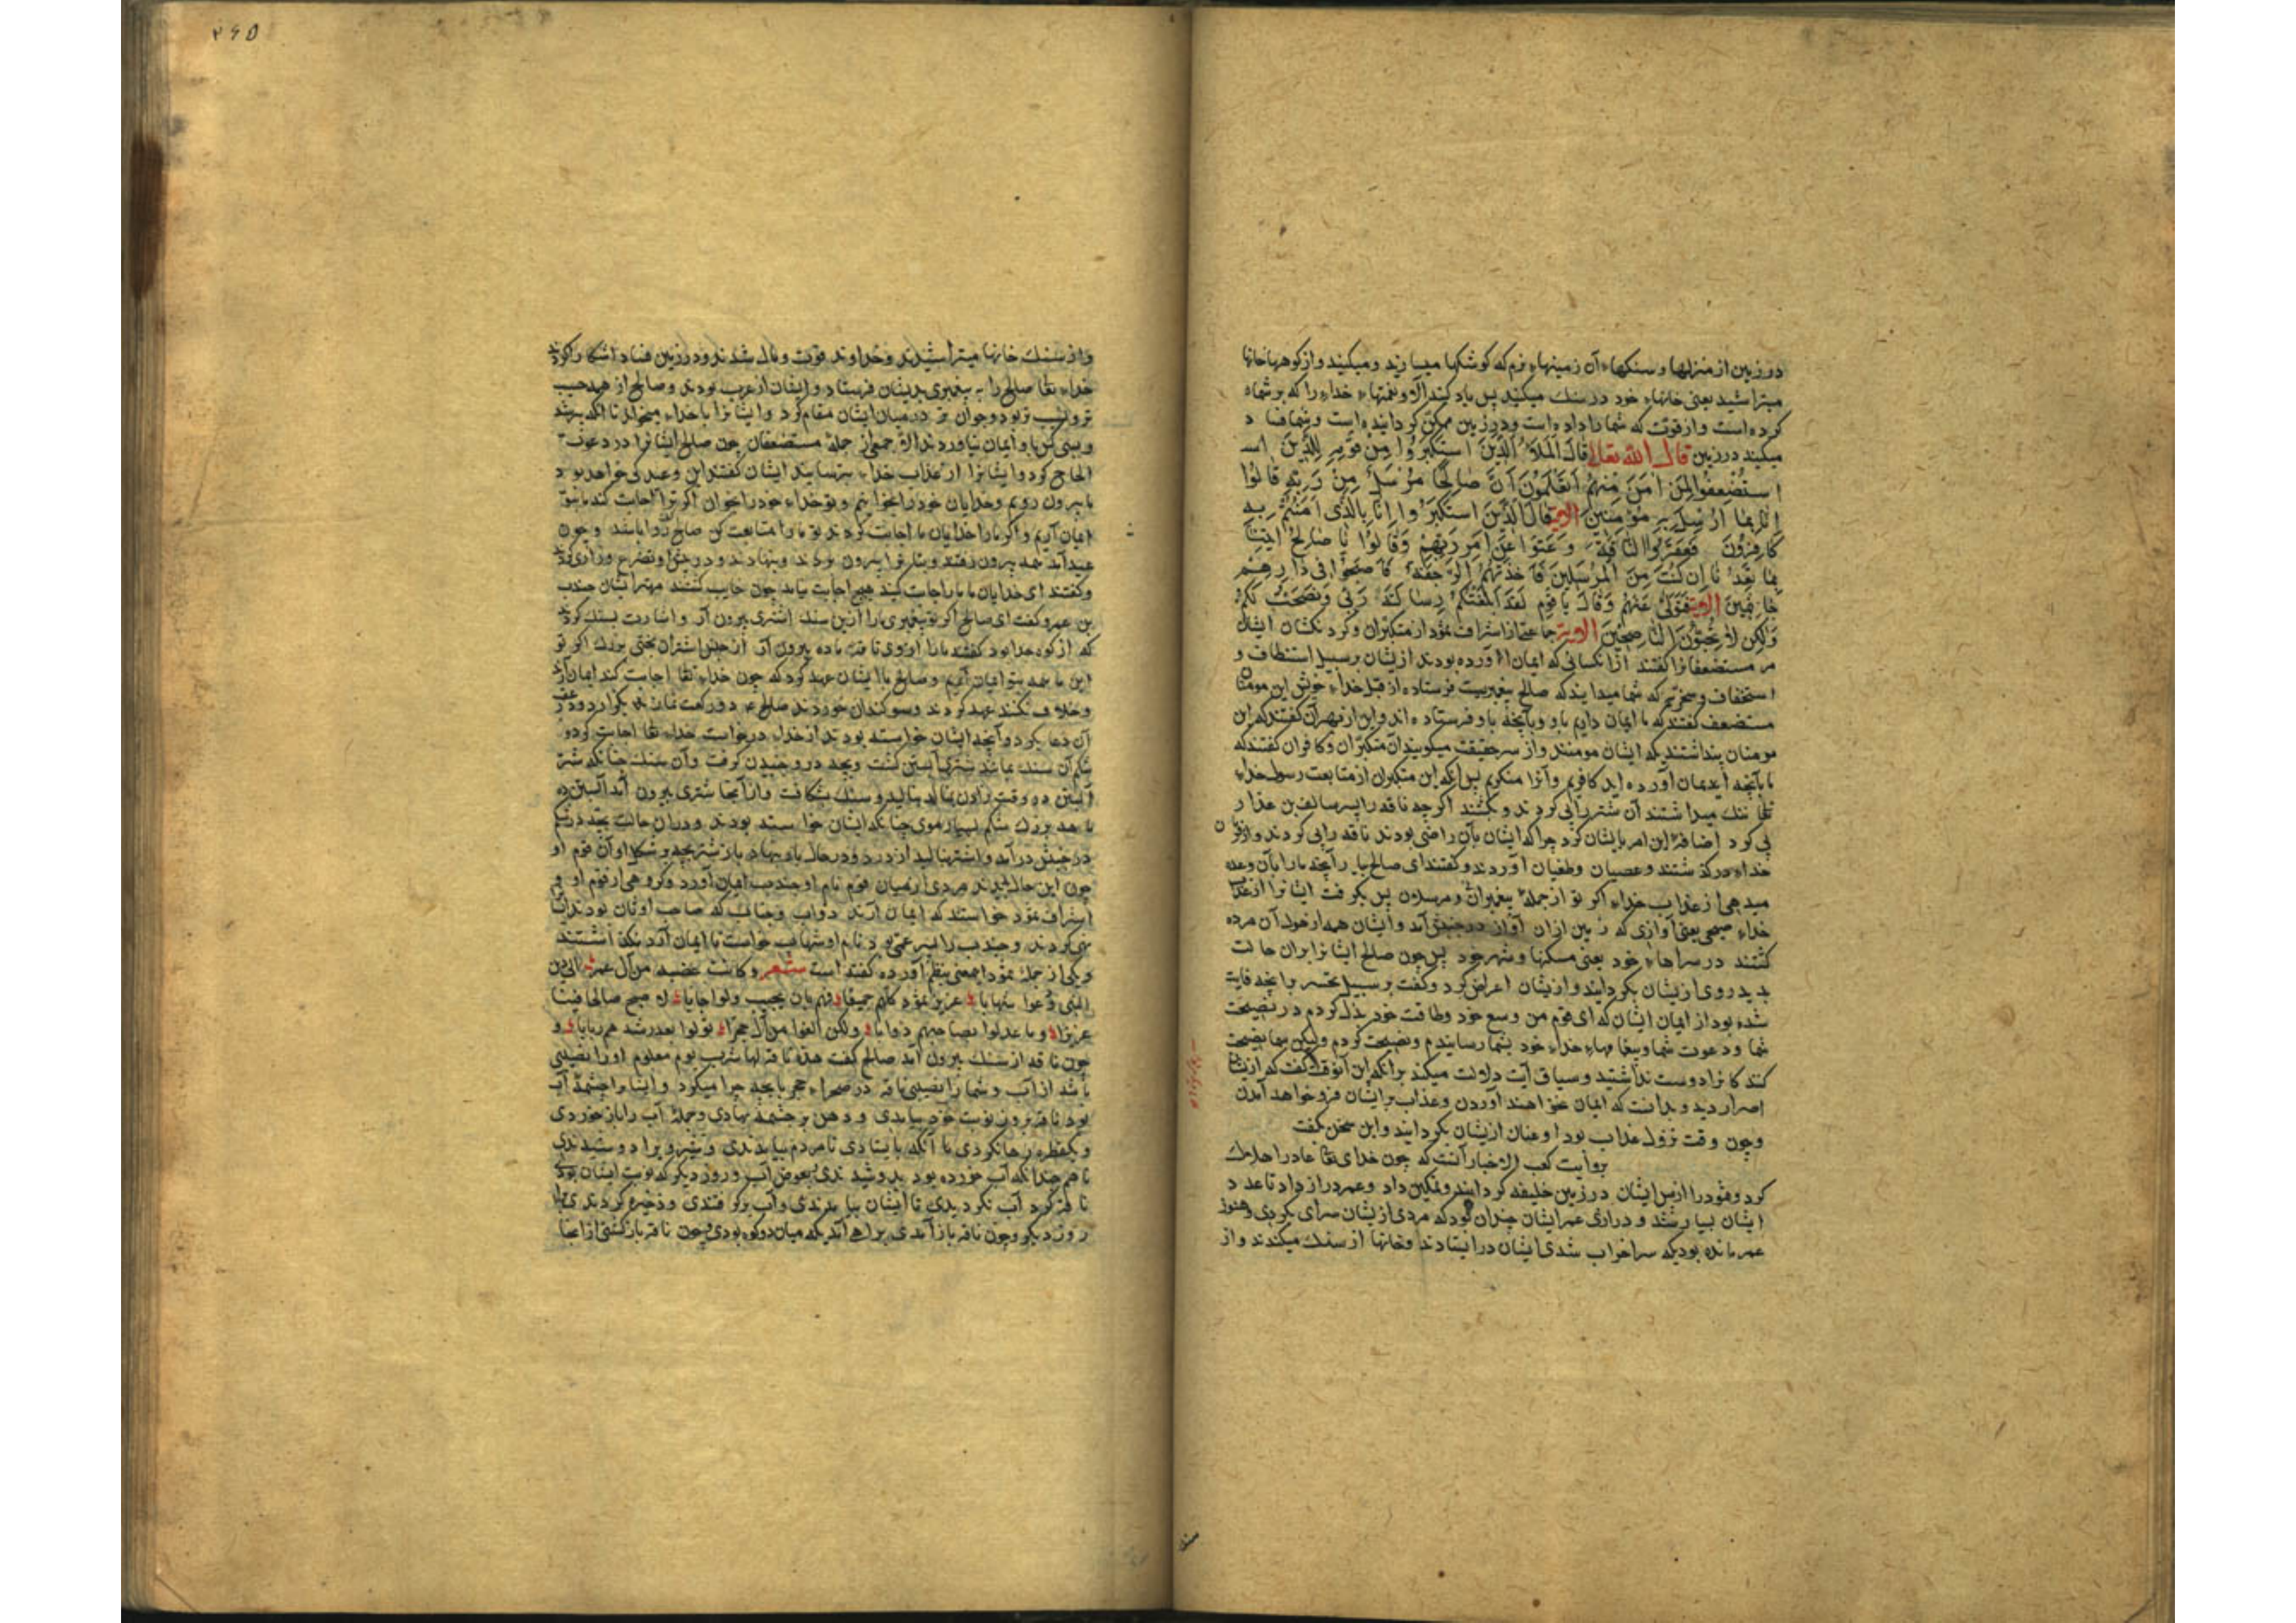 در زمین از منزلها و سنکهاء آن زمینهاء نرم که کوشکها میسازید و میکنید و از کوهها خانها
میتراشید یعنی خانهاء خود در سنک میکنید پس یاد کنید آلا و نعمتهاء خداء را که بر شماه
کرده است و از قوت که شما را داده است و در زمین ممکن کردانیده است و شما فسا د
میکنید در زمین قال الله تعالی قَالَ الْمَلَاُ الَّذِینَ اسْتَکْبَرُوا مِنْ قَوْمِهِ لِلَّذِینَ اسـ
اسْتُضْعِفُوا لِمَنْ اٰمَنَ مِنْهُمْ اَتَعْلَمُونَ اَنَّ صَالِحًا مُرْسَلٌ مِنْ رَبِّهِ قَالُوا
اِنَّا بِمَا اُرْسِلَ بِهِ مُؤْمِنِینَ الایه قَالَ الَّذِینَ اسْتَکْبَرُوا اِنَّا بِالَّذِی اٰمَنْتُمْ بِـهِ
کَافِرُونَ فَعَقَرُوا النَّاقَةَ وَعَتَوْا عَنْ اَمْرِ رَبِّهِمْ وَقَالُوا یَا صَالِحُ ائْتِنَا
بِمَا تَعِدُنَا اِنْ کُنْتَ مِنَ الْمُرْسَلِینَ فَاَخَذَتْهُمُ الرَّجْفَةُ فَاَصْبَحُوا فِی دَارِهِـمْ
جَاثِمِینَ الایة فَتَوَلَّی عَنْهُمْ وَقَالَ یَا قَوْمِ لَقَدْ اَبْلَغْتُکُمْ رِسَالَةَ رَبِّی وَنَصَحْتُ لَکُمْ
وَلٰکِنْ لَا تُحِبُّونَ النَّاصِحِینَ الایة جماعتی از اشراف ثمود از متکبران و کردنکشان ایشان
مر مستضعفانرا کفتند از انکسانی که ایمان آورده بودند ازیشان بر سبیل استنطاف و
استخفاف و سخریّه که شما میدانید که صالح پیغمبریست فرستاده از قبل خداء خویش این مومنان
مستضعف کفتند که ما ایمان داریم باو و بآنچه باو فرستاده اند و این از بهر آن کفتند که این
مومنان پنداشتند که ایشان مومنند و از سر حقیقت میکویند آن متکبران و کافران کفتند که
ما بآنچه ایمان آورده اید کافریم و آنرا منکریم پس آنکه این متکبران از متابعت رسول خداء
تعالی ننک میداشتند آن شتر را پی کردند و بکشتند اکر چه ناقه را پسر سالف بن عذا ر
پی کرد اضافهٔ این امر بایشان کرد چرا که ایشان بآن راضی بودند ناقه را پی کردند و از فرمان
خداء درکذشتند و عصیان و طغیان آوردند و کفتند ای صالح بیار آنچه ما را بآن وعده
میدهی از عذاب خداء اکر تو از جملهٔ پیغمبران و مرسلان پس بکرفت ایشانرا از عذاب
خداء صیحی یعنی آوازی که زمین ازان آواز در جنبش آمد و ایشان همه از هول آن مرده
کشتند در سراهاء خود یعنی مسکنها و شهر خود پس چون صالح ایشانرا بران حالت
بدید روی ازیشان بکردانید و ازیشان اعراض کرد و کفت بر سبیل تحسر برآنچه فایت
شده بود از ایمان ایشان که ای قوم من وسع خود و طاقت خود بذل کردم در نصیحت
شما و دعوت شما و پیغامهاء خداء خود بشما رسانیدم و نصیحت کردم ولیکن شما نصیحت
کنندکانرا دوست نداشتید و سیاق آیت دلالت میکند برانکه این آنوقت کفت که ازیشان
اصرار دید و بدانست که ایمان نخواهند آوردن و عذاب بر ایشان فرو خواهد آمدن
و چون وقت نزول عذاب بود او عنان ازیشان بکردانید و این سخن بکفت
بروایت کعب الاخبار آنست که چون خدای تعالی عاد را هلاک
کرد و ثمود را از پس ایشان در زمین خلیفه کردانید و تمکین داد و عمر دراز داد تا عد د
ایشان بسیار شد و درازی عمر ایشان چندان بود که مردی ازیشان سرای بکردی و هنوز
عمر مانده بودیکه سرا خراب شدی ایشان در ایستادند و خانها از سنک میکندند و از
۲۶۵
و از سنک خانها میتراشیدند و خداوند قوت و مال شدند و در زمین فساد آشکارا کردند
خداء تعالی صالح را به پیغمبری بدیشان فرستاد و ایشان از عرب بودند و صالح از همه حسیب
تر و نسیب تر بود و جوان تر در میان ایشان مقام کرد و ایشانرا با خداء میخواند تا آنکه پیر شد
و بسی کس باو ایمان نیاوردند الا جمعی از جملهٔ مستضعفان چون صالح ایشانرا در دعوت
الحاح کرد و ایشانرا از عذاب خداء بترسانید ایشان کفتند این وعده کی خواهد بو د
ما بیرون رویم و خدایان خود را بخوانیم و تو خداء خود را بخوان اکر ترا اجابت کند ما بتو
ایمان آریم و اکر ما را خدایان ما اجابت کردند تو ما را متابعت کن صالح روا باشد و چون
عید آمد همه بیرون رفتند و بتانرا بیرون بردند و بنهادند و درپیش او تضرع و زاری کردند
و کفتند ای خدایان ما ما را اجابت کنید هیچ اجابت نیامد چون خایب کشتند مهتر ایشان جندب
بن عمرو کفت ای صالح اکر تو پیغمبری ما را ازین سنک اشتری بیرون آر و اشارت بسنک کردند
که از کوه جدا بود کفتند ما را ازوی ناقهٔ ماده بیرون آر از جنس اشتران بختی بزرک اکر تو
این ما همه بتو ایمان آریم و صالح با ایشان عهد کرد که چون خداء تعالی اجابت کند ایمان آرند
و خلاف نکنند عهد کردند و سوکندان خوردند صالح ع دو رکعت نماز بکزارد و در عقب
آن دعا بکرد و آنچه ایشان خواسته بودند از خداء درخواست خداء تعالی اجابت کرد و
شکم آن سنک بمانند شتر آبستن کشت و بچه درو جنبیدن کرفت و آن سنک چنانکه شتر
آبستن ده وقت زادن بنالد بنالید و سنک بشکافت و از آنجا شتری بیرون آمد آبستن ده
ماهه بزرک شکم بسیار موی چنانکه ایشان خواسته بودند و دران حالت بچه در شکم
در جنبش درآمد و اشتر بنالید از درد و درحال بار بنهاد باز شتر بچه بر شکل او آن قوم او
چون این حال بدیدند مردی از میان قوم نام او جندب ایمان آورد و کروهی از قوم او و
اشراف ثمود خواستند که ایمان آرند ذواب و جناب که صاحب اوثان بودند ایشانرا
نهی کردند و جندب را پسر عمّی بود نام او شهاب خواست تا ایمان آرد نکذاشتند
و یکی از جملهٔ ثمود این معنی بنظم آورده کفته است شعر و کانت عصبه من آل عمرو الی دین
النبی دعوا شهابا عزیز ثمود کلهم جمیعا فهم بان یجیب ولو اجابا لا صبح صالحا فینا
عزیزا و ما عدلوا بصاحبهم ذوابا ولکن الغوا من آل حجر تولوا بعد رشدهم ربابا و
چون ناقه از سنک بیرون آمد صالح کفت هذه ناقة لها شرب یوم معلوم او را نصیبی
باشد از آب و شما را نصیبی ناقه در صحراء حجر با بچه چرا میکرد و ایشانرا چشمهٔ آب
بود ناقه بروز نوبت خود بیامدی و دهن بر چشمه نهادی و جملهٔ آب را باز خوردی
و یکقطره رها نکردی تا آنکه بایستادی تا مردم بیامدندی و شیر ویرا دوشیدندی
تا هم چندانکه آب خورده بود بدوشیدندی بعوض آب و روز دیکر که نوبت ایشان بودی
ناقه کرد آب نکردیدی تا ایشان بیامدندی و آب برکرفتندی و ذخیره کردندی تا
روز دیکر و چون ناقه باز آمدی براهی آمدیکه میان دو کوه بودی چون ناقه بازکشتی از آنجا